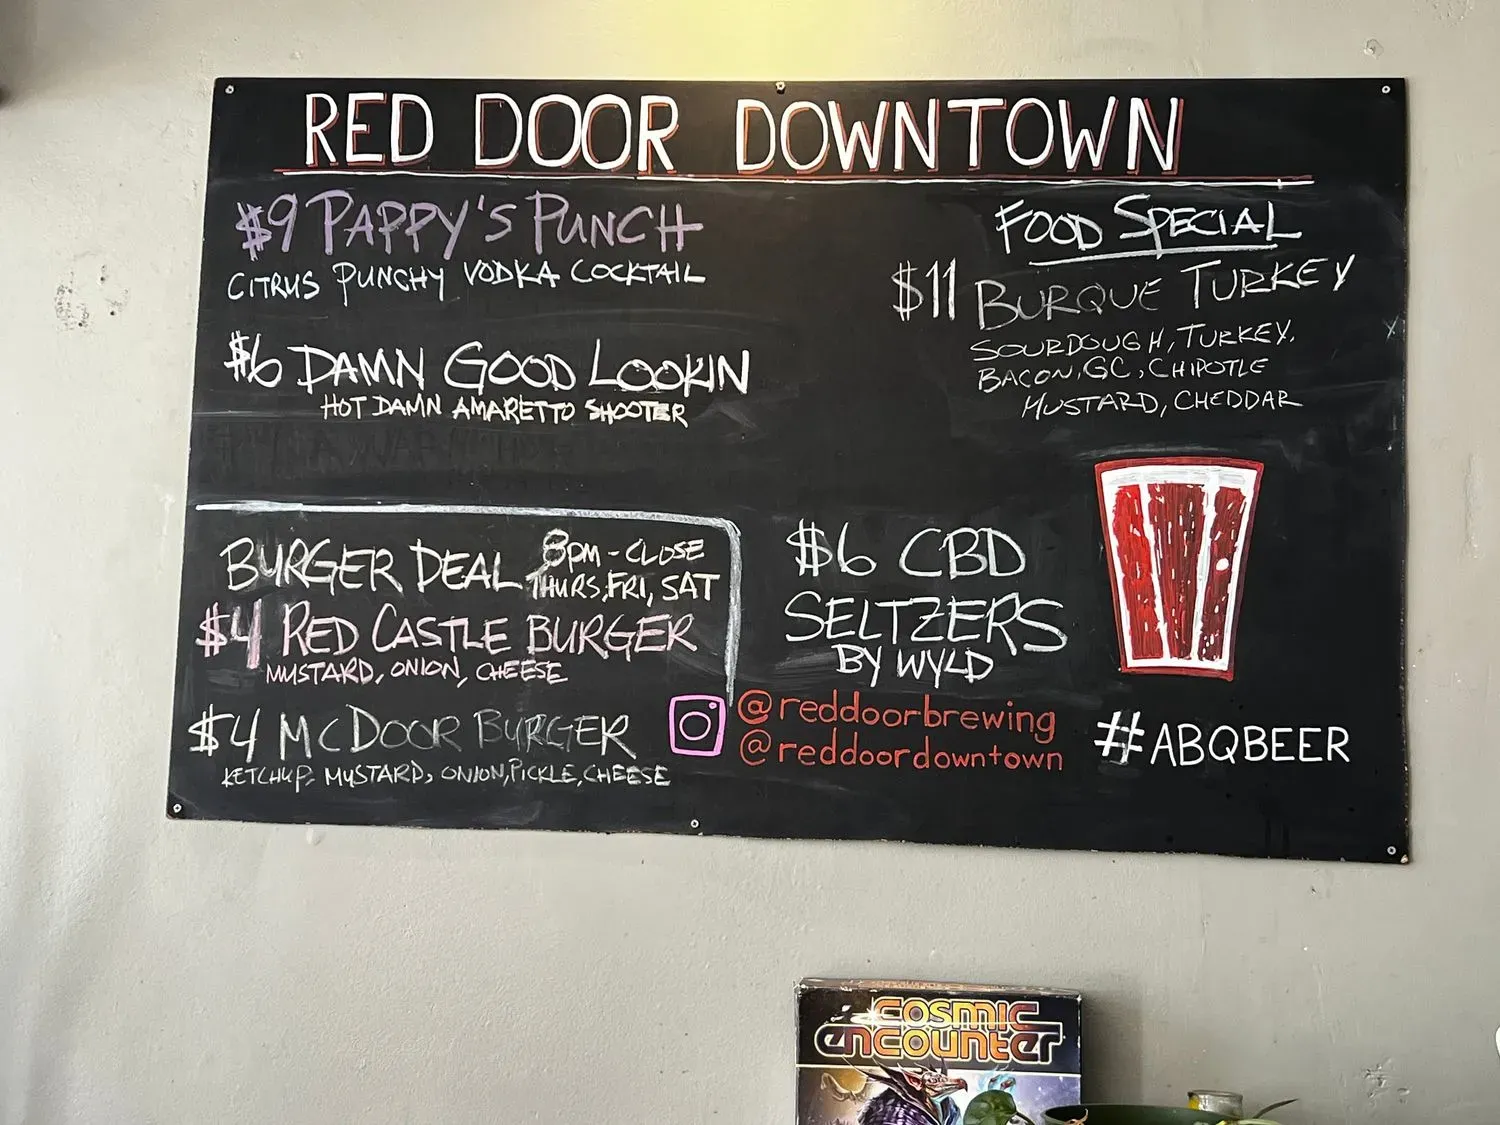 RED DOOR DOWNTOWN
$9 PAPPY'S PUNCH
CITRUS PUNCHY VODKA COCKTAIL
$6 DAMN GOOD LOOKIN
HOT DAMN AMARETTO SHOOTER
FOOD SPECIAL
$11 BURQUE TURKEY
SOURDOUGH, TURKEY,
BACON, GC, CHIPOTLE
MUSTARD, CHEDDAR
BURGER DEAL 8PM-CLOSE
THURS, FRI, SAT
$4 RED CASTLE BURGER
MUSTARD, ONION, CHEESE
$4 MCDOOR BURGER
KETCHUP, MUSTARD, ONION, PICKLE, CHEESE
$6 CBD
SELTZERS
BY WYLD
@reddoorbrewing
@reddoordowntown
#ABQBEER
COSMIC
encounter